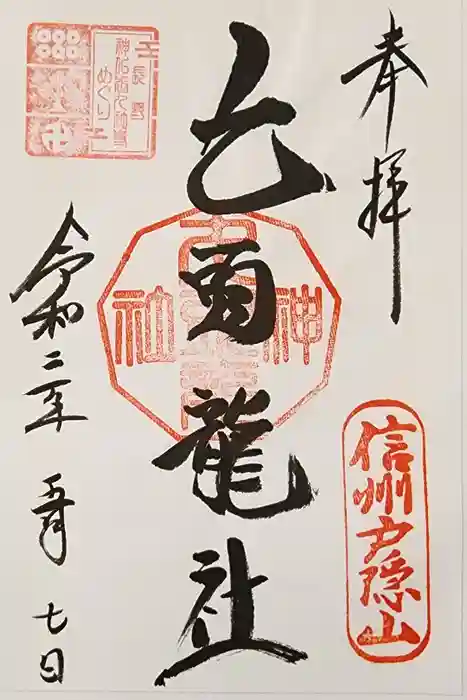 奉拝
信州戸隠山
九頭龍社
令和二年 五月 七日
長野
めぐり
神
社